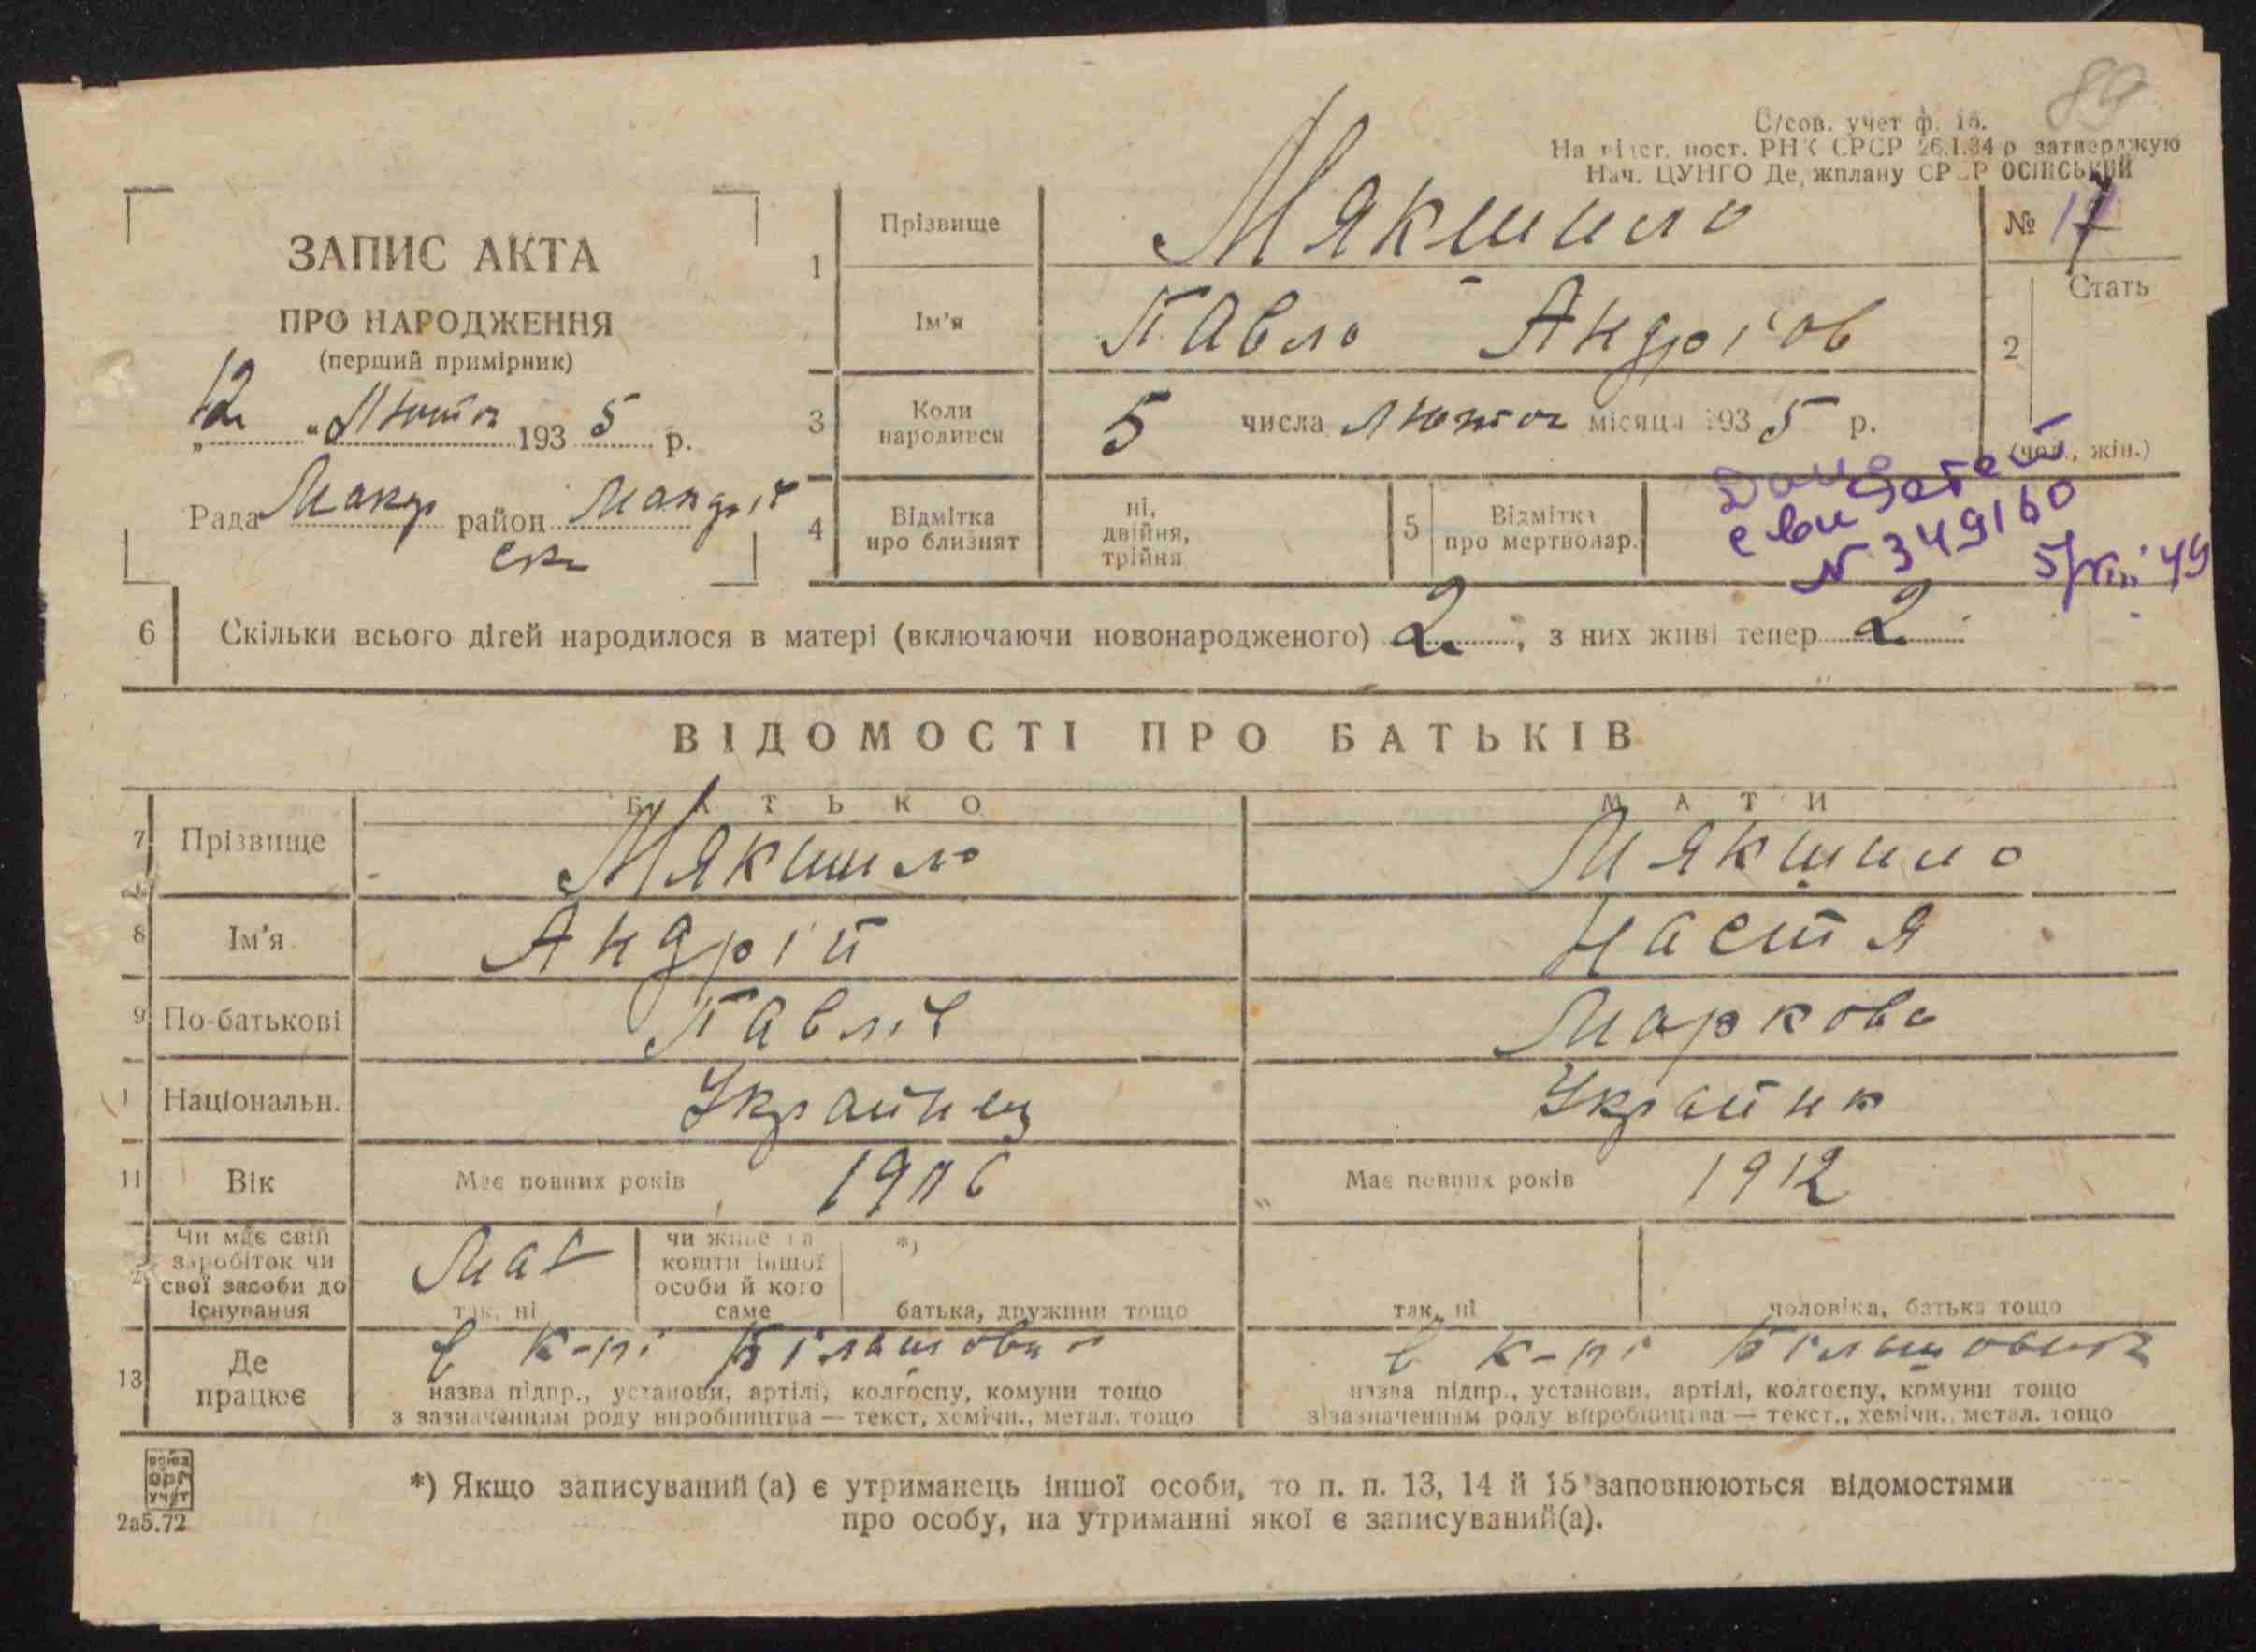 89
С/сов. учет ф. 1б.
На підст. пост. РНК СРСР 26.I.34 р. затверджую
Нач. ЦУНГО Держплану СРСР ОСІНСЬКИЙ
ЗАПИС АКТА
ПРО НАРОДЖЕННЯ
(перший примірник)
„12“ Лютого 1935 р.
Рада район
1 Прізвище Мякшило
№ 17
Ім'я Павло Андріов
2 Стать
(чол., жін.)
3 Коли народився 5 числа лютого місяця 1935 р.
4 Відмітка про близнят ні, двійня, трійня
5 Відмітка про мертвонар.
N 349160
5/VIII 49
6 Скільки всього дітей народилося в матері (включаючи новонародженого) 2, з них живі тепер 2
ВІДОМОСТІ ПРО БАТЬКІВ
БАТЬКО МАТИ
7 Прізвище Мякшило Мякшило
8 Ім'я Андрій Настя
9 По-батькові Павліч Маркова
Національн. Украйнец Украйнк
11 Вік Має повних років 1906 Має повних років 1912
Чи має свій заробіток чи свої засоби до існування Має
так, ні
чи живе на кошти іншої особи й кого саме
*)
батька, дружини тощо
так, ні
чоловіка, батька тощо
13 Де працює в к-пі Більшовик в к-пі Більшовик
назва підпр., установи, артілі, колгоспу, комуни тощо назва підпр., установи, артілі, колгоспу, комуни тощо
з зазначенням роду виробництва — текст, хемічн., метал. тощо з зазначенням роду виробництва — текст., хемічн., метал. тощо
СОЮЗ
ОРГ
УЧЕТ
2а5.72
*) Якщо записуваний (а) є утриманець іншої особи, то п. п. 13, 14 й 15 заповнюються відомостями
про особу, на утриманні якої є записуваний(а).